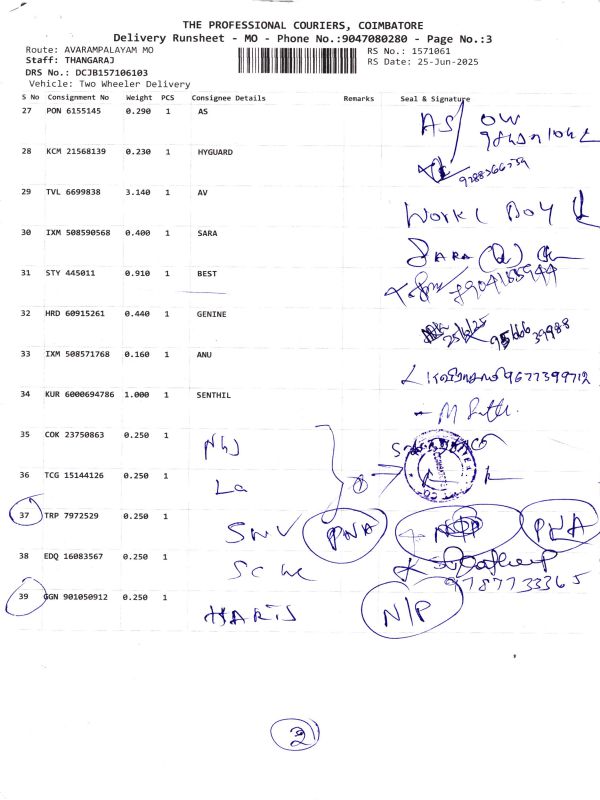 THE PROFESSIONAL COURIERS, COIMBATORE
Delivery Runsheet - MO - Phone No.:9047080280 - Page No.:3
Route: AVARAMPALAYAM MO
RS No.: 1571061
Staff: THANGARAJ
RS Date: 25-Jun-2025
DRS No.: DCJB157106103
Vehicle: Two Wheeler Delivery
S No Consignment No Weight PCS Consignee Details Remarks Seal & Signature
27 PON 6155145 0.290 1 AS AS OW
28 KCM 21568139 0.230 1 HYGUARD
29 TVL 6699838 3.140 1 AV
30 IXM 508590568 0.400 1 SARA SARA
31 STY 445011 0.910 1 BEST 8904155944
32 HRD 60915261 0.440 1 GENINE 25/6/25
33 IXM 508571768 0.160 1 ANU 9677399712
34 KUR 6000694786 1.000 1 SENTHIL
35 COK 23750863 0.250 1
36 TCG 15144126 0.250 1 La
37 TRP 7972529 0.250 1 SNV PNA PNA
38 EDQ 16083567 0.250 1
9787733365
39 GGN 901050912 0.250 1 HARIS N/P
2